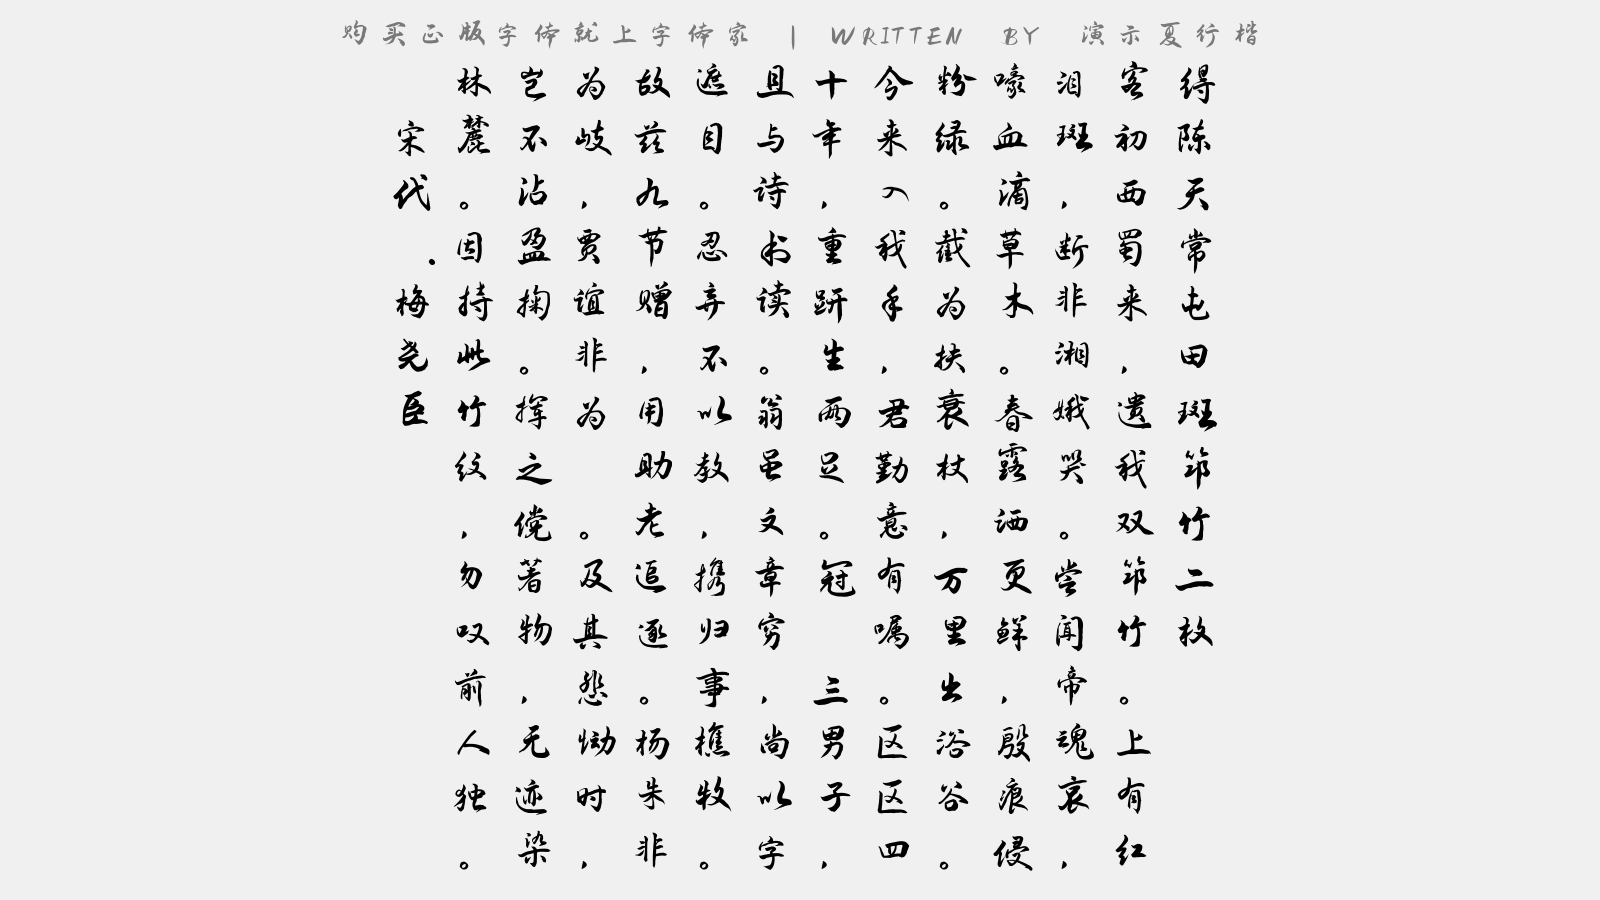 购买正版字体就上字体家 | WRITTEN BY 演示夏行楷
得陈天常屯田斑筇竹二枚
客初西蜀来，遗我双筇竹。上有红
泪斑，断非湘娥哭。尝闻帝魂哀，
嚎血滴草木。春露洒更鲜，殷痕侵
粉绿。截为扶衰杖，万里出浴谷。
今来入我手，君勤意有嘱。区区四
十年，重趼生两足。冠 三男子，
且与诗书读。翁虽文章穷，尚以字
遮目。忍弃不以教，携归事樵牧。
故兹九节赠，用助老追逐。杨朱非
为岐，贾谊非为 。及其怨恸时，
岂不沾盈掬。挥之傥著物，无迹染
林麓。因持此竹纹，勿叹前人独。
宋代·梅尧臣